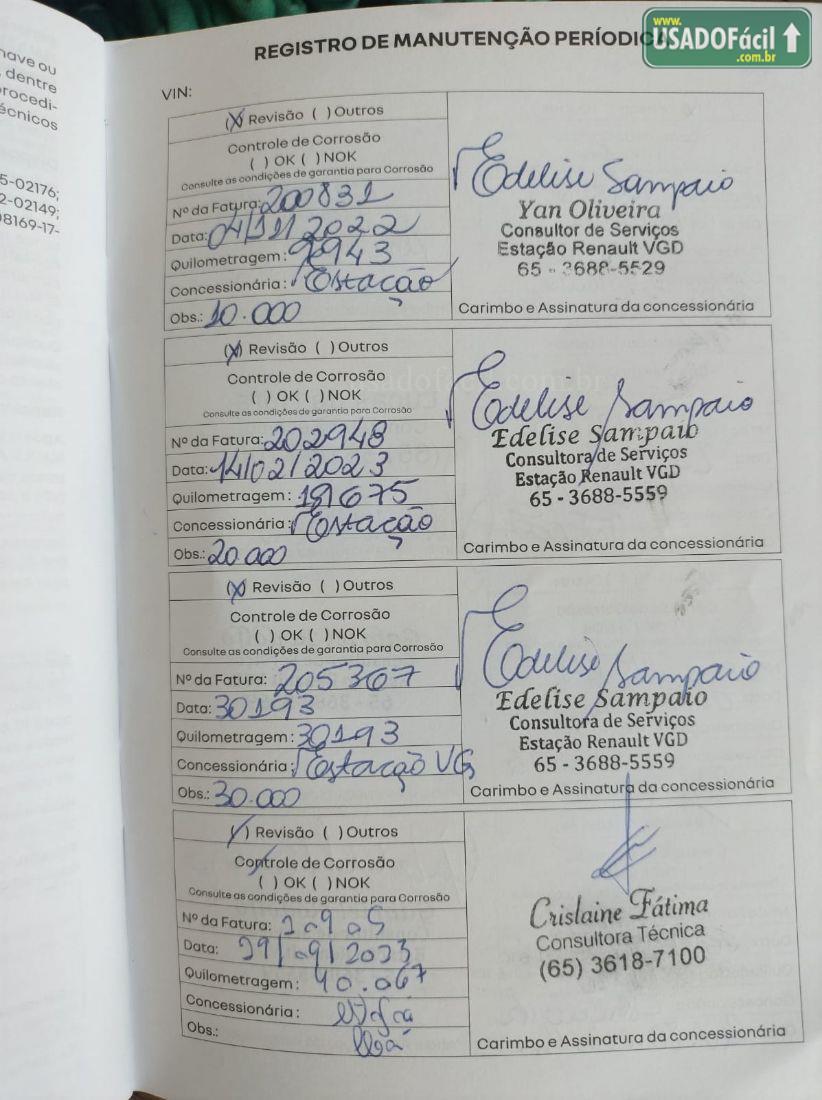 www.
USADOFácil
.com.br
have ou
, dentre
rocedi-
écnicos
5-02176;
2-02149;
08169-17-
REGISTRO DE MANUTENÇÃO PERÍODICA
VIN:
(X) Revisão ( ) Outros
Controle de Corrosão
( ) OK ( ) NOK
Consulte as condições de garantia para Corrosão
Nº da Fatura: 200831
Data: 04/11/2022
Quilometragem: 9943
Concessionária: Estação
Obs.: 10.000
Edelise Sampaio
Yan Oliveira
Consultor de Serviços
Estação Renault VGD
65 - 3688-5529
Carimbo e Assinatura da concessionária
(X) Revisão ( ) Outros
Controle de Corrosão
( ) OK ( ) NOK
Consulte as condições de garantia para Corrosão
Nº da Fatura: 202948
Data: 14/02/2023
Quilometragem: 19675
Concessionária: Estação
Obs.: 20.000
Edelise Sampaio
Edelise Sampaio
Consultora de Serviços
Estação Renault VGD
65 - 3688-5559
Carimbo e Assinatura da concessionária
(X) Revisão ( ) Outros
Controle de Corrosão
( ) OK ( ) NOK
Consulte as condições de garantia para Corrosão
Nº da Fatura: 205367
Data: 30193
Quilometragem: 30193
Concessionária: Estação VG
Obs.: 30.000
Edelise Sampaio
Edelise Sampaio
Consultora de Serviços
Estação Renault VGD
65 - 3688-5559
Carimbo e Assinatura da concessionária
(/) Revisão ( ) Outros
Controle de Corrosão
( ) OK ( ) NOK
Consulte as condições de garantia para Corrosão
Nº da Fatura:
Data:
Quilometragem: 40.067
Concessionária:
Obs.:
Crislaine Fátima
Consultora Técnica
(65) 3618-7100
Carimbo e Assinatura da concessionária